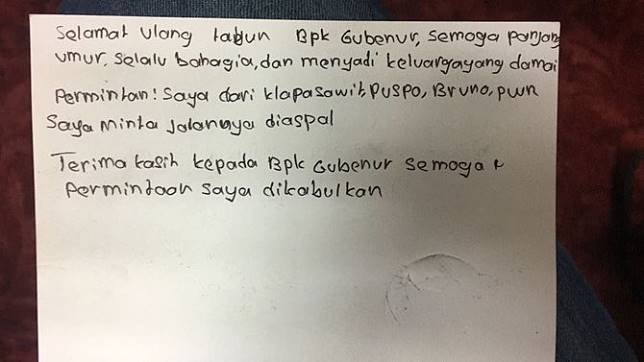 Selamat ulang tahun Bpk Gubenur, semoga panjang
umur. Selalu bahagia, dan menyadi keluargayang damai
Permintan! Saya dari klapasawit, Puspo, Bruno, pwn
Saya minta Jalannya diaspal
Terima kasih kepada Bpk Gubenur semoga
Permintaan saya dikabulkan